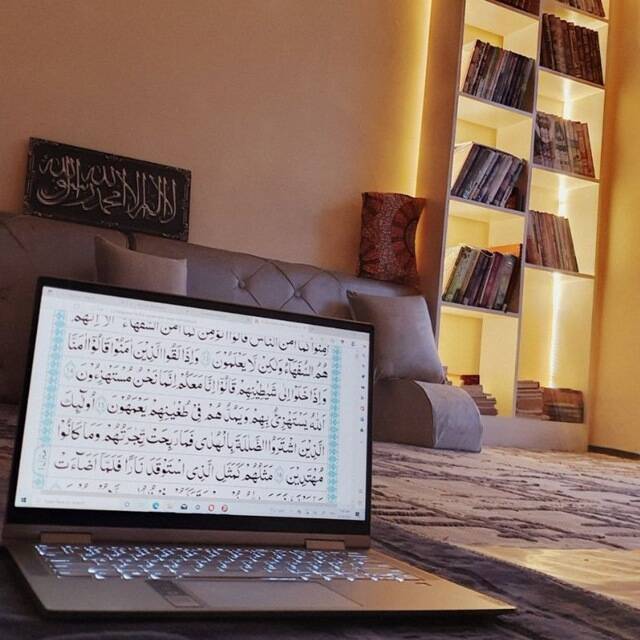 لا اله الا الله محمد رسول الله
اٰمِنُوْا كَمَاۤ اٰمَنَ النَّاسُ قَالُوْۤا اَنُؤْمِنُ كَمَاۤ اٰمَنَ السُّفَهَآءُ ؕ اَلَاۤ اِنَّهُمْ
هُمُ السُّفَهَآءُ وَلٰكِنْ لَّا يَعْلَمُوْنَ ۝۱۳ وَاِذَا لَقُوا الَّذِيْنَ اٰمَنُوْا قَالُوْۤا اٰمَنَّا
وَاِذَا خَلَوْا اِلٰى شَيٰطِيْنِهِمْ قَالُوْۤا اِنَّا مَعَكُمْ اِنَّمَا نَحْنُ مُسْتَهْزِءُوْنَ ۝۱۴
اَللّٰهُ يَسْتَهْزِئُ بِهِمْ وَيَمُدُّهُمْ فِيْ طُغْيَانِهِمْ يَعْمَهُوْنَ ۝۱۵ اُولٰٓئِكَ
الَّذِيْنَ اشْتَرَوُا الضَّلٰلَةَ بِالْهُدٰى فَمَا رَبِحَتْ تِّجَارَتُهُمْ وَمَا كَانُوْا
مُهْتَدِيْنَ ۝۱۶ مَثَلُهُمْ كَمَثَلِ الَّذِى اسْتَوْقَدَ نَارًا فَلَمَّاۤ اَضَآءَتْ